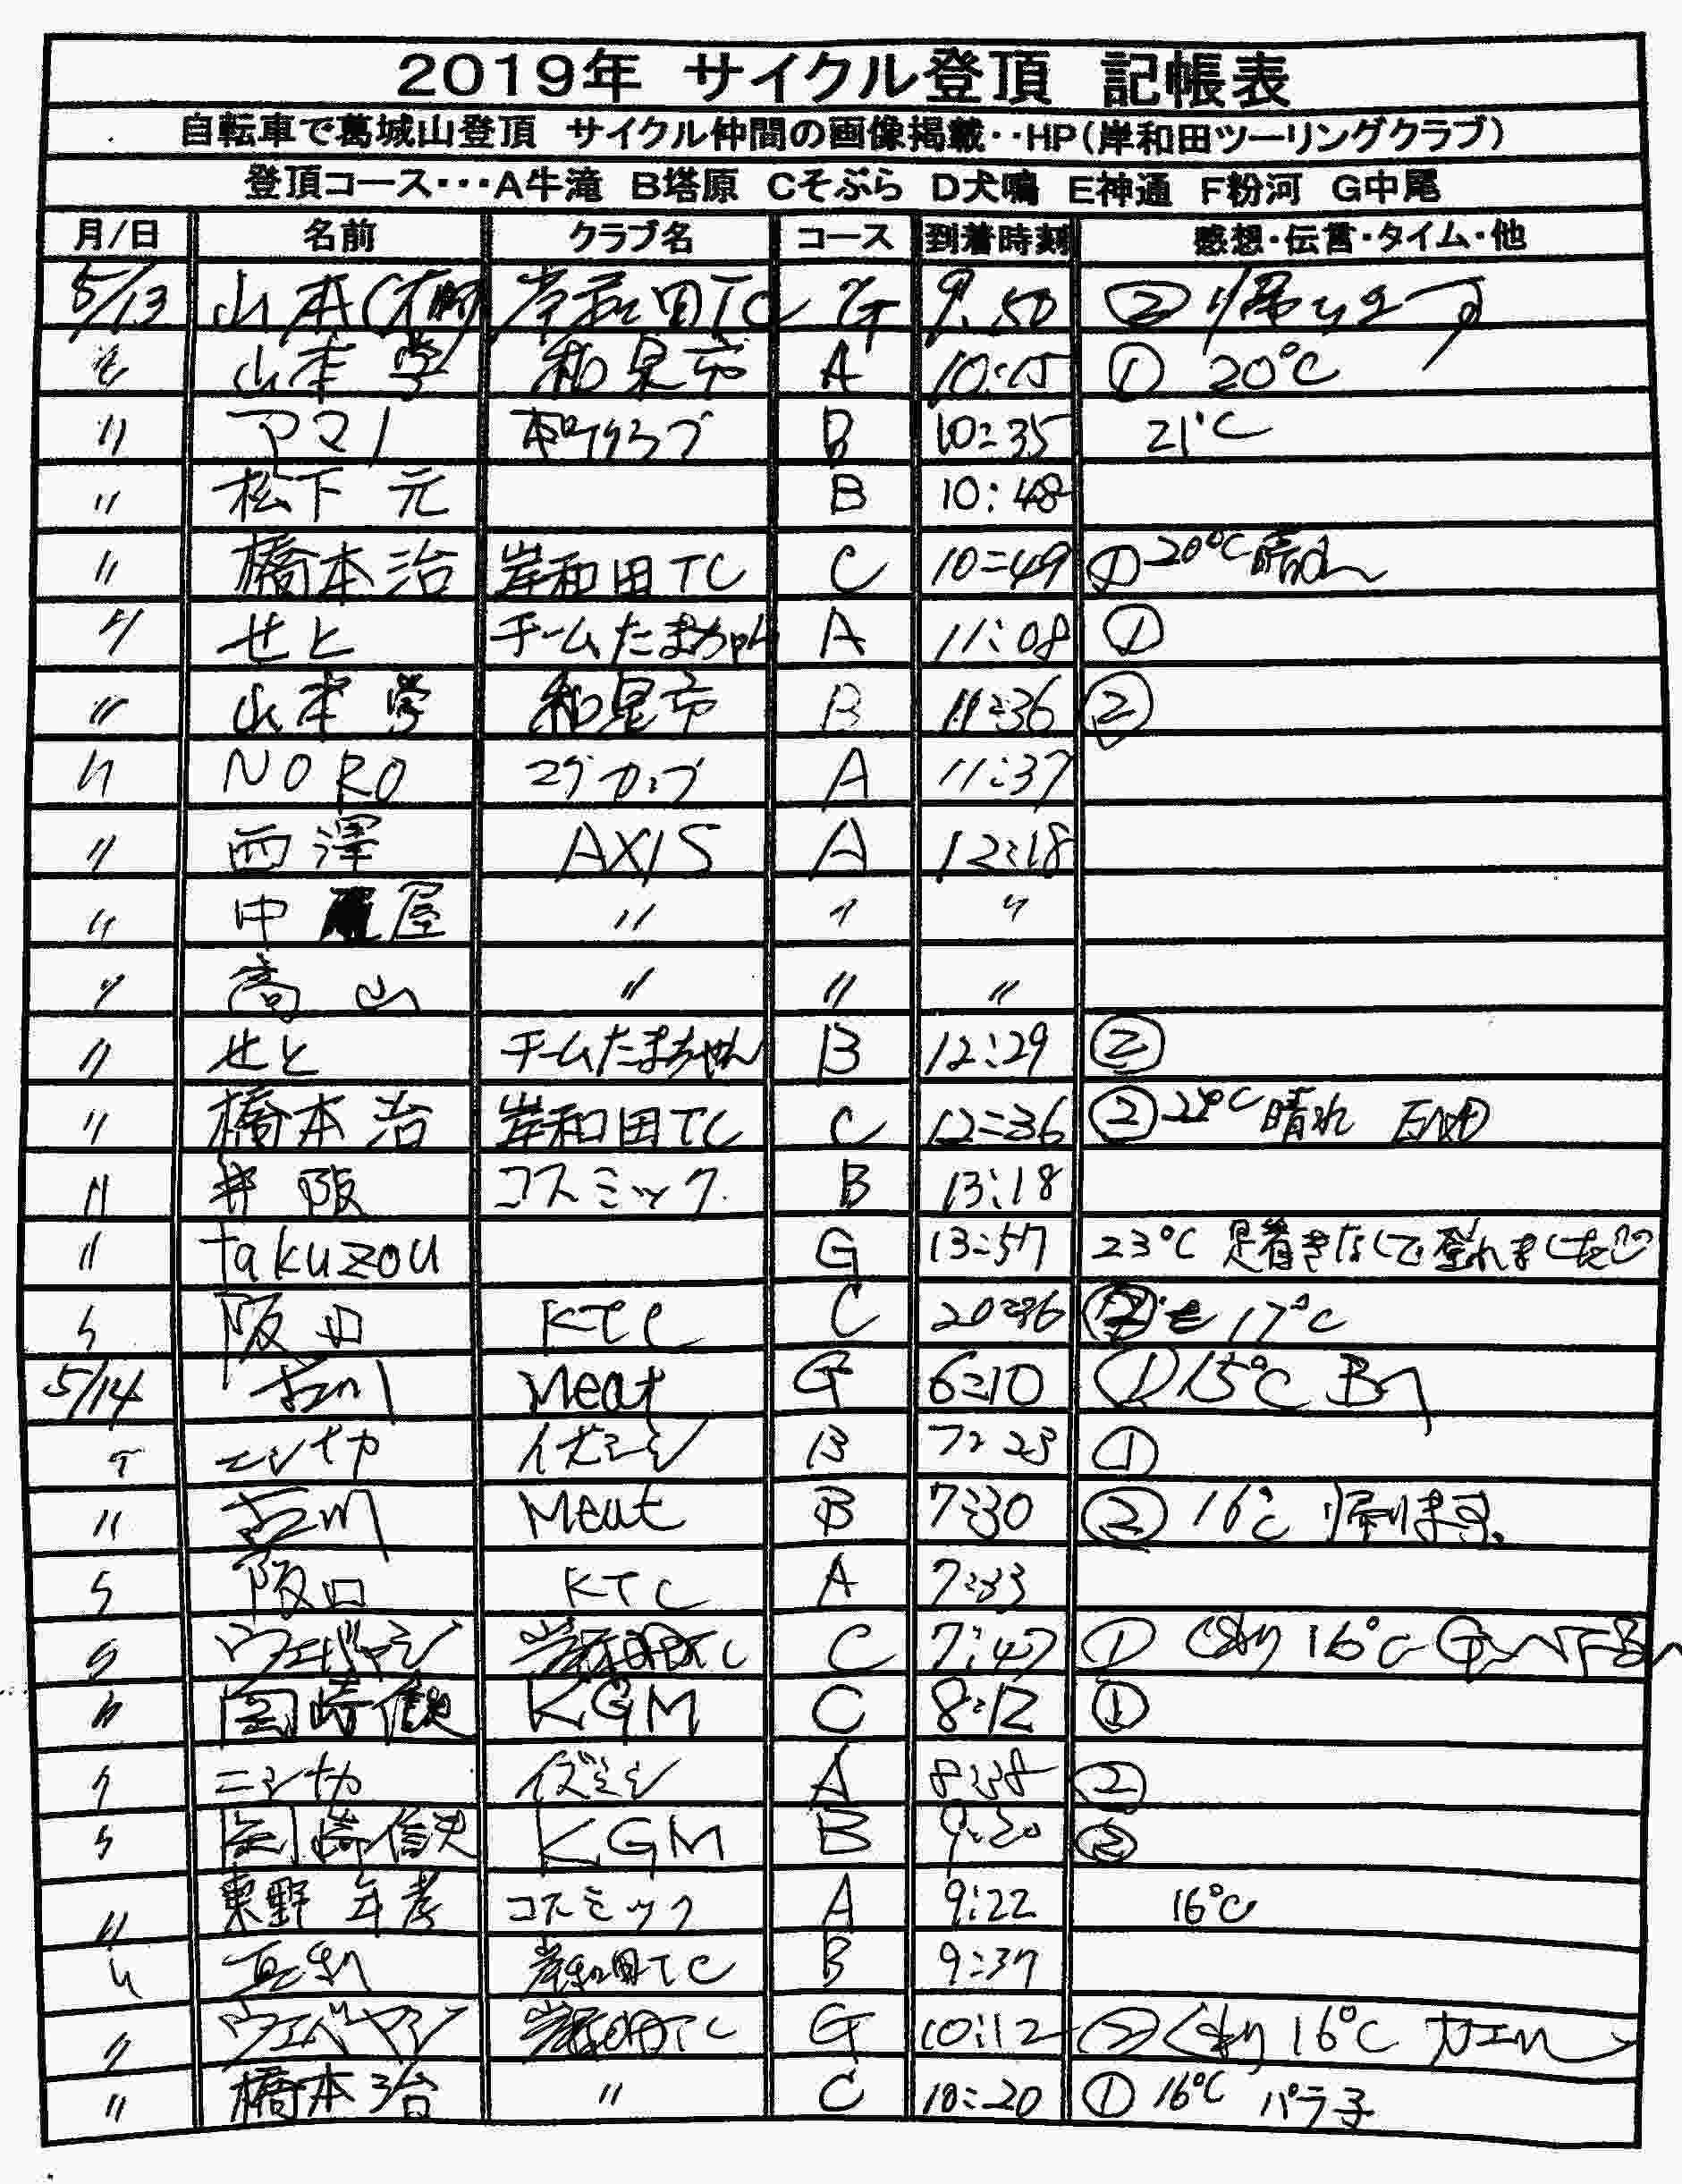 2019年 サイクル登頂 記帳表
自転車で葛城山登頂 サイクル仲間の画像掲載・・HP(岸和田ツーリングクラブ)
登頂コース・・・A牛滝 B塔原 Cそぶら D犬鳴 E神通 F粉河 G中尾
月/日 名前 クラブ名 コース 到着時刻 感想・伝言・タイム・他
5/13 山本 岸和田TC G 9:50 ② 帰ります
〃 山本 学 和泉市 A 10:15 ① 20℃
〃 アマノ B 10:35 21℃
〃 松下 元 B 10:48
〃 橋本 治 岸和田TC C 10:49 ① 20℃ 晴れ
〃 せと チームたまちゃん A 11:08 ①
〃 山本 学 和泉市 B 11:36 ②
〃 NORO A 11:37
〃 西澤 AXIS A 12:18
〃 中屋 〃 〃 〃
〃 高山 〃 〃 〃
〃 せと チームたまちゃん B 12:29 ②
〃 橋本 治 岸和田TC C 12:36 ② 22℃ 晴れ
〃 井阪 コスミック B 13:18
〃 takuzou G 13:57 23℃ 足着きなしで登れました
〃 阪口 KTC C 17℃
5/14 古川 Meat G 6:10 ① 15℃ Bへ
〃 ニシオカ イズミシ B 7:23 ①
〃 古川 Meat B 7:30 ② 16℃ 帰ります。
〃 阪口 KTC A 7:33
〃 ウエバヤシ 岸和田TC C 7:47 ① くもり 16℃
〃 岡崎 KGM C 8:12 ①
〃 ニシオカ イズミシ A 8:38 ②
〃 岡崎 KGM B 9:20 ②
〃 東野 年孝 コスミック A 9:22 16℃
〃 岸和田TC B 9:37
〃 ウエバヤシ 岸和田TC G 10:12 ② くもり 16℃
〃 橋本 治 〃 C 10:20 ① 16℃ パラ子